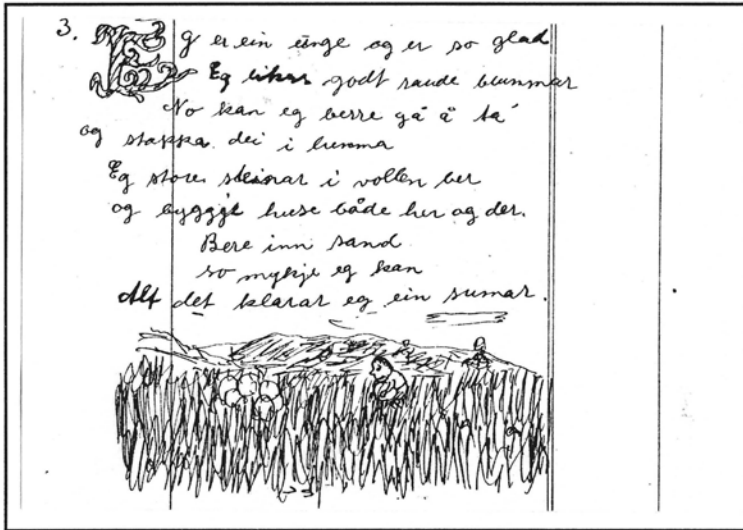 3. Eg er ein unge og er so glad
Eg likar godt raude blummar
No kan eg berre gå å ta
og stakka dei i lumma
Eg store steinar i vollen ber
og byggje huse både her og der.
Bere inn sand
so mykje eg kan
Alt det klarar eg ein sumar.